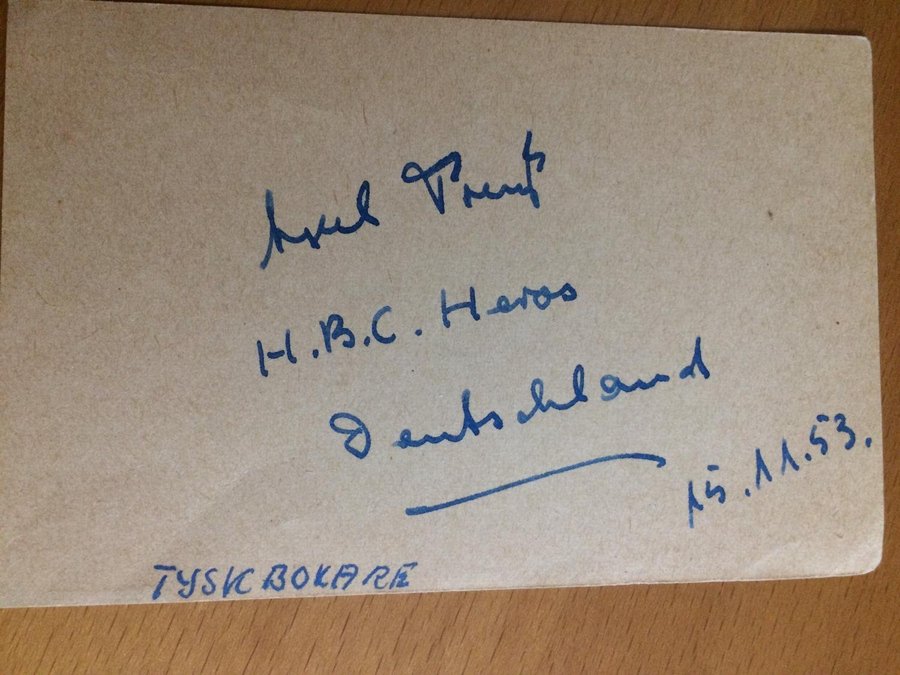 Axel Preuß
H.B.C. Heros
Deutschland
15.11.53.
TYSK BOXARE